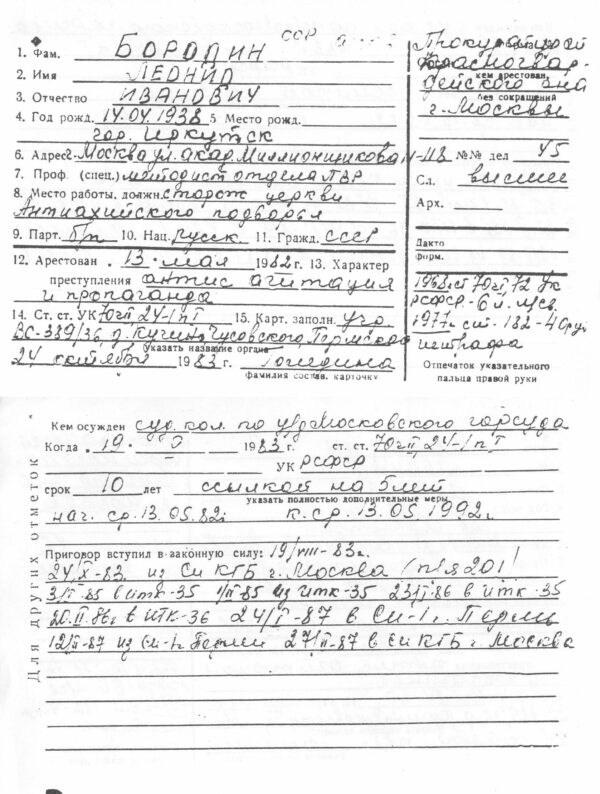 ССР
1. Фам. БОРОДИН
2. Имя ЛЕОНИД
3. Отчество ИВАНОВИЧ
4. Год рожд. 14.04.1938 5 Место рожд.
гор. Иркутск
6. Адрес г. Москва ул. акад. Миллионщикова
7. Проф. (спец.) методист отдела
8. Место работы, должн. сторож церкви
Антиахийского подворья
9. Парт. б/п 10. Нац. русск. 11. Гражд. СССР
12. Арестован 13 мая 1982 г. 13. Характер
преступления антис агитация
и пропаганда
14. Ст. ст. УК 70 ч II 24-1 п I 15. Карт. заполн. учр.
ВС-389/36, д. Кучино Чусовского Пермской
указать название органа
24 октября 1983 г.
фамилия состав. карточку
Прокуратурой
Красногвар-
кем арестован,
дейского р-на
без сокращений
г. Москвы
№№ дел 45
Сл. высшее
Арх.
Дакто
форм.
1968 ст 70 ч I, 72 УК
РСФСР - 6 л. л/св.
1977г. ст. - 182 - 40 ру.
штрафа
Отпечаток указательного
пальца правой руки
Для других отметок
Кем осужден суд. кол. по уд Московского горсуда
Когда 19 V 1983 г. ст. ст. 70 ч II 24-1 п I
УК РСФСР
срок 10 лет ссылкой на 5 лет
указать полностью дополнительные меры
нач. ср. 13.05.82г к. ср. 13.05.1992г.
Приговор вступил в законную силу: 19/VIII-83г.
24/X-83. из Си КГБ г. Москва (п/я 201)
3/I-85 в итк-35 1/II-85 из итк-35 23/I-86 в итк-35
20.II.86г. в ИТК-36 24/I-87 в Си-1 г. Пермь
12/II-87 из Си-1 г. Перми 27/II-87 в Си КГБ г. Москва